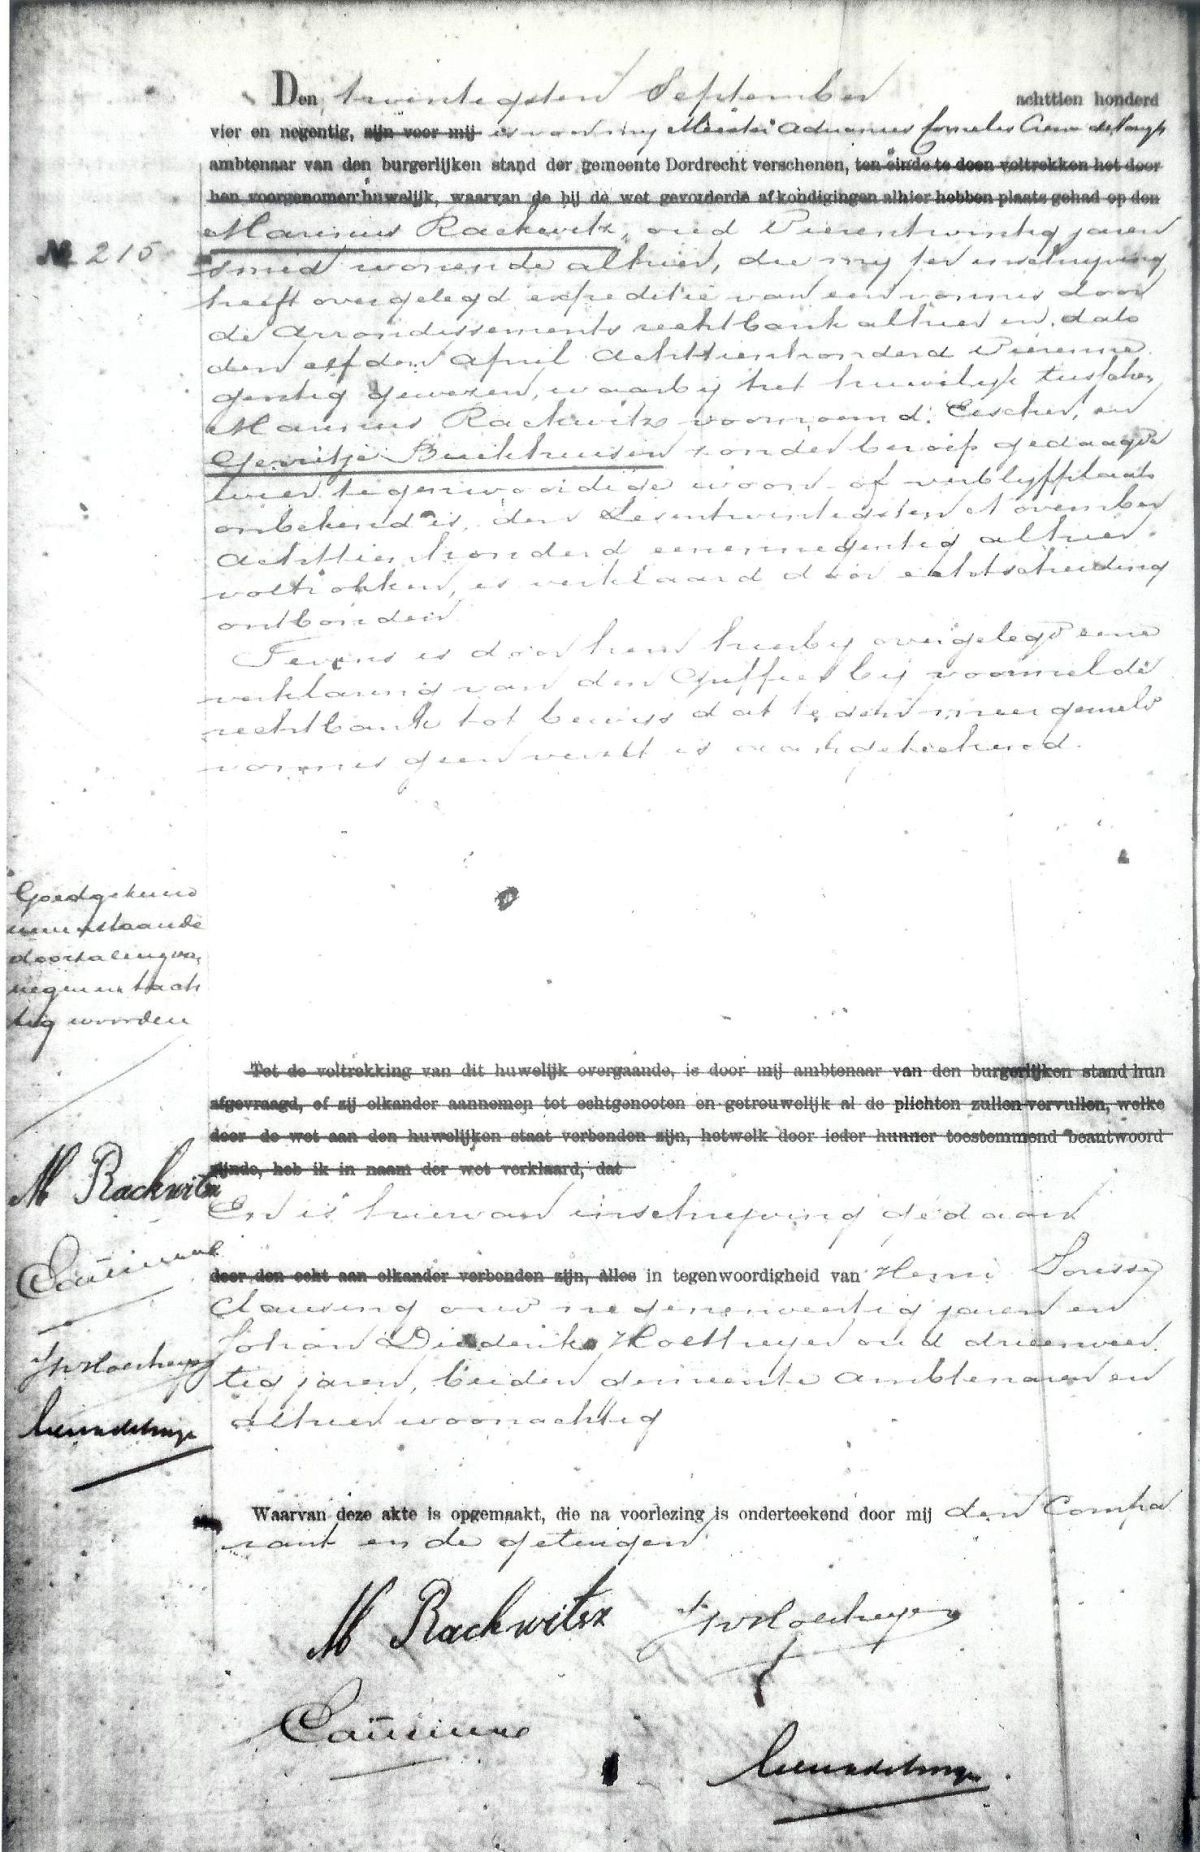 Den twentigsten September achttien honderd
vier en negentig, zijn voor mij is voor mij Meester Adrianus Cornelis
ambtenaar van den burgerlijken stand der gemeente Dordrecht verschenen, ten einde te doen voltrekken het door
hen voorgenomen huwelijk, waarvan de bij de wet gevorderde afkondigingen alhier hebben plaats gehad op den
No 215
Marinus Rackwitsz, oud Vierentwintig jaren
smid wonende alhier, die mij ter inschrijving
heeft overgelegd expeditie van een vonnis door
de Arrondissements rechtbank alhier in dato
den elfden April Achttienhonderd Vierenne
gentig gewezen, waarbij het huwelijk tusschen
Marinus Rackwitsz voornoemd: Eischer, en
Gerritje zonder beroep gedaagde
wier tegenwoordige woon- of verblijfplaats
onbekend is, den Zesentwintigsten November
Achttienhonderd eenennegentig alhier
voltrokken, is verklaard door echtscheiding
ontbonden
Tevens is door hem hierbij overgelegd eene
verklaring van den Griffier bij voormelde
rechtbank tot bewijs dat tegen meergemeld
vonnis geen verzet is aangeteekend.
Goedgekeurd
nevenstaande
doorhaling van
negenentach
tig woorden
Tot de voltrekking van dit huwelijk overgaande, is door mij ambtenaar van den burgerlijken stand hun
afgevraagd, of zij elkander aannemen tot echtgenooten en getrouwelijk al de plichten zullen vervullen, welke
door de wet aan den huwelijken staat verbonden zijn, hetwelk door ieder hunner toestemmend beantwoord
zijnde, heb ik in naam der wet verklaard, dat
M Rackwitsz
En is hiervan inschrijving gedaan
door den echt aan elkander verbonden zijn, Alles in tegenwoordigheid van Henri
Clausing oud negenenveertig jaren en
Johan Diederik Holtheyer oud drieenveer
tig jaren, beiden gemeente ambtenaren en
alhier woonachtig
Waarvan deze akte is opgemaakt, die na voorlezing is onderteekend door mij den Compa
rant en de getuigen
M Rackwitsz